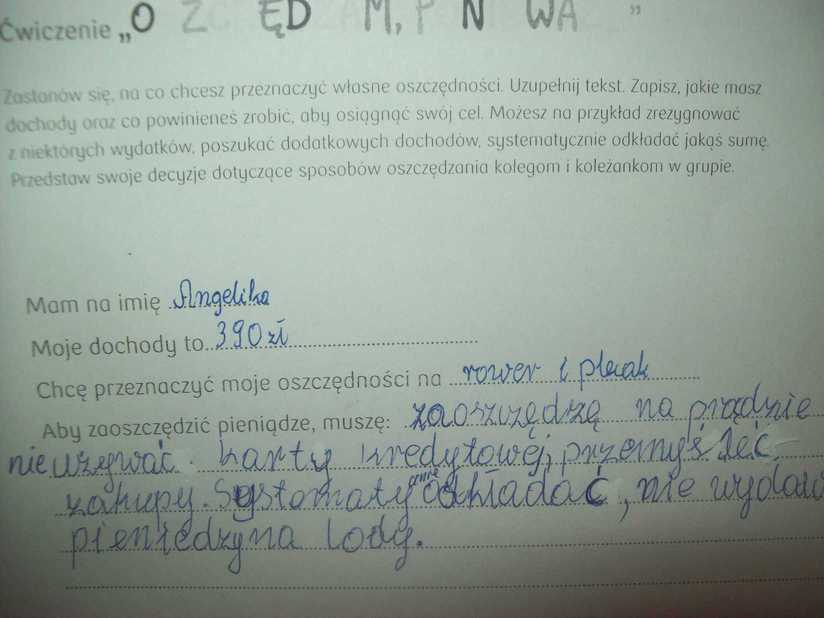 Ćwiczenie „O ZC ĘD ZA M, P N WA ”
Zastanów się, na co chcesz przeznaczyć własne oszczędności. Uzupełnij tekst. Zapisz, jakie masz
dochody oraz co powinieneś zrobić, aby osiągnąć swój cel. Możesz na przykład zrezygnować
z niektórych wydatków, poszukać dodatkowych dochodów, systematycznie odkładać jakąś sumę.
Przedstaw swoje decyzje dotyczące sposobów oszczędzania kolegom i koleżankom w grupie.
Mam na imię Angelika
Moje dochody to 390 zł
Chcę przeznaczyć moje oszczędności na rower i plecak
Aby zaoszczędzić pieniądze, muszę: zaoszczędzę na prądzie
nie używać karty kredytowej, przemyśleć
zakupy. Systomatycznie odkładać, nie wydaw
pieniedzy na lody.